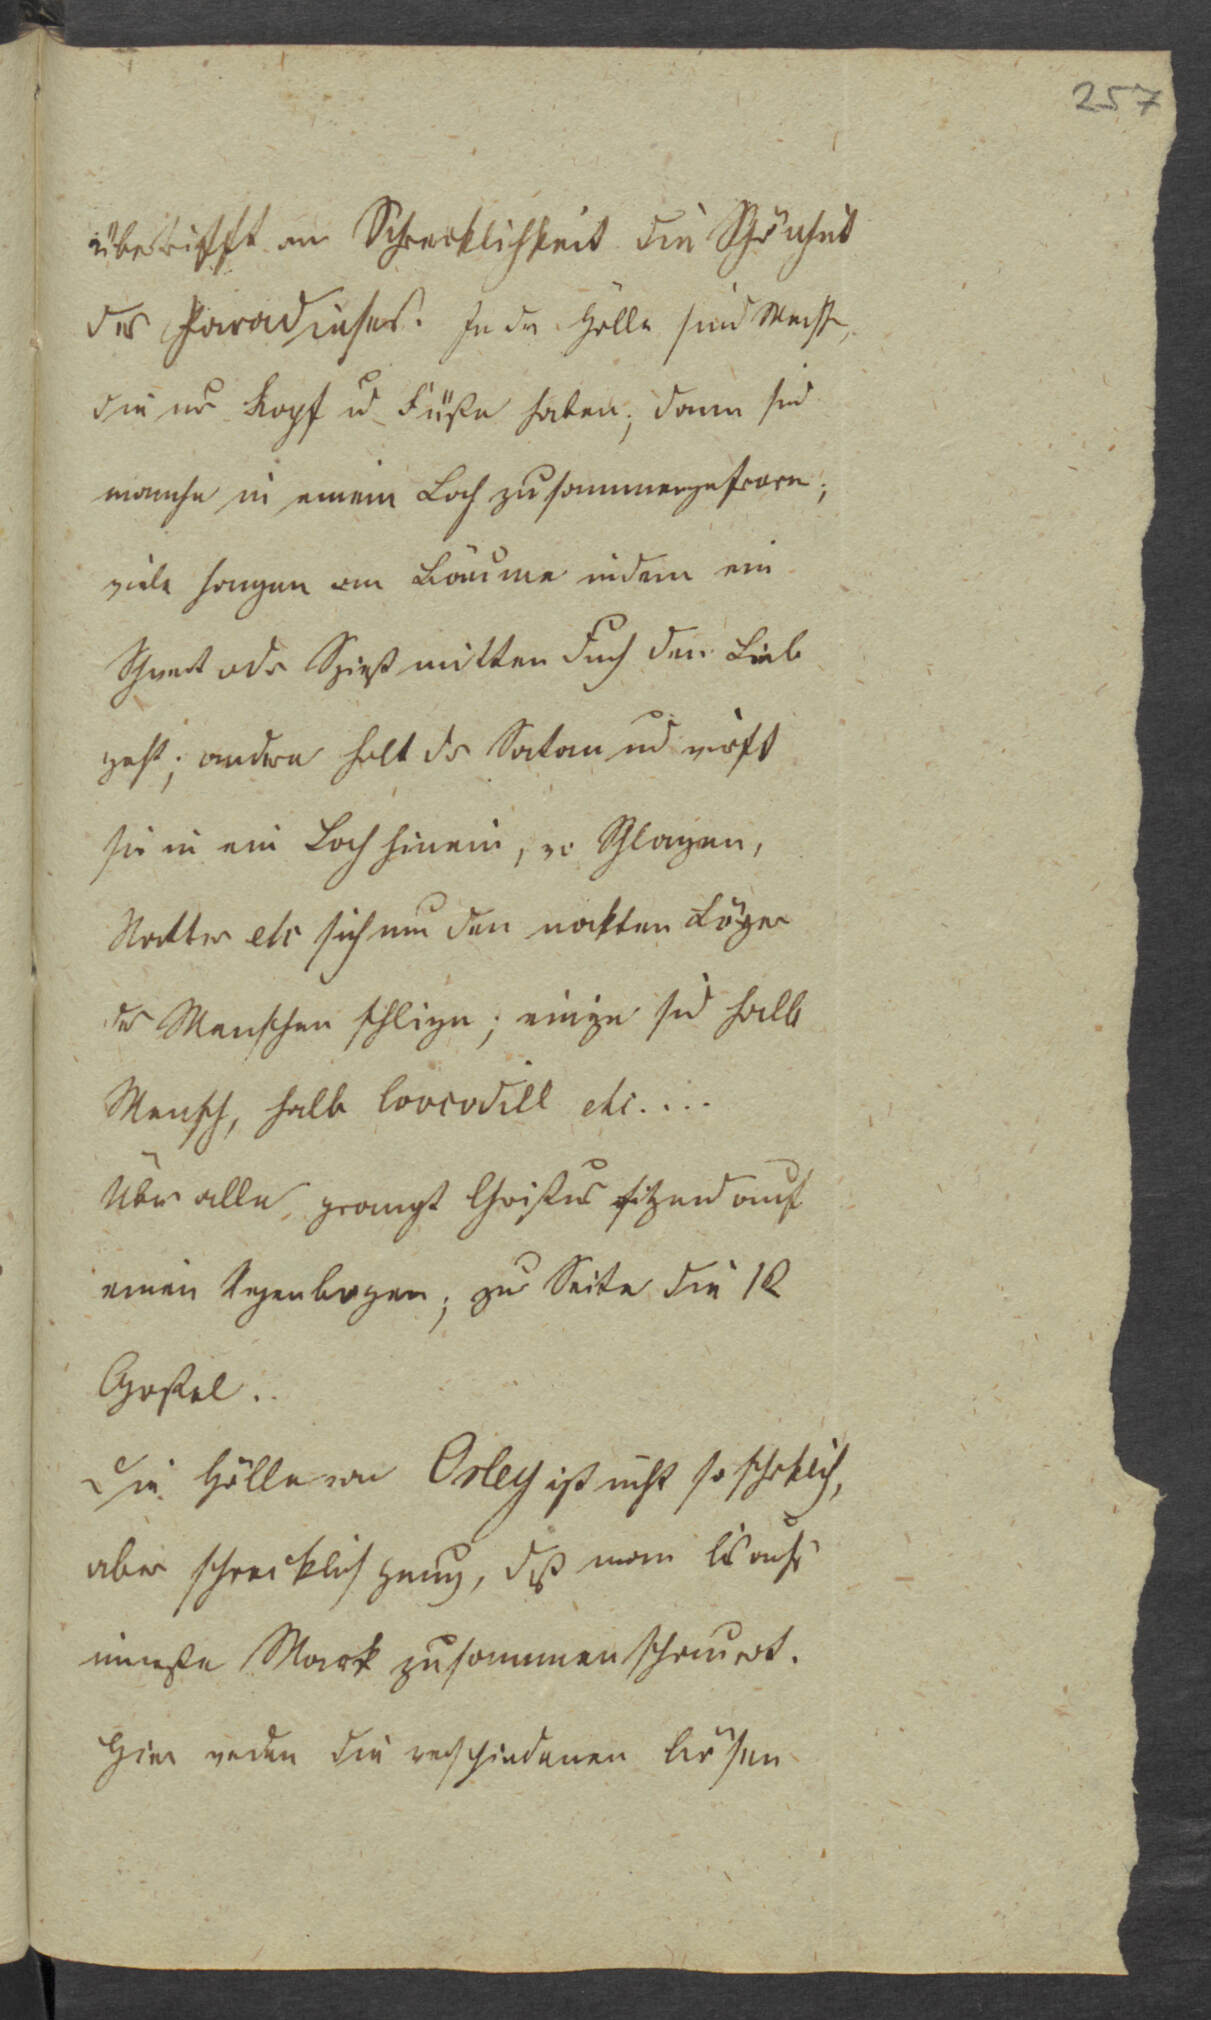 257
übertrifft an Schrecklichkeit die Schönheit
des Paradieses. In der Hölle sind Mensch,
die nur Kopf u Füße haben; dann sind
manche in einem Loch zusammengefroren;
viele hangen an Bäume indem ein
Schwert oder Spieß mitten durch den Leib
geht; andere holt der Satan und wirft
sie in ein Loch hinein, wo Schlagen,
Natter etc sich um den nakten Köper
der Menschen schligen; einige sid halb
Mensch, halb Corcodill etc....
Über alle prangt Christus sitzend auf
einen Regenbogen; zur Seite die 12
Apostel..
Die Hölle von Orley ist nicht so schreklich,
aber schrecklich genug, daß man bis aufs
innerste Mark zusammenschauert.
Hier werden die verschiedenen bösen